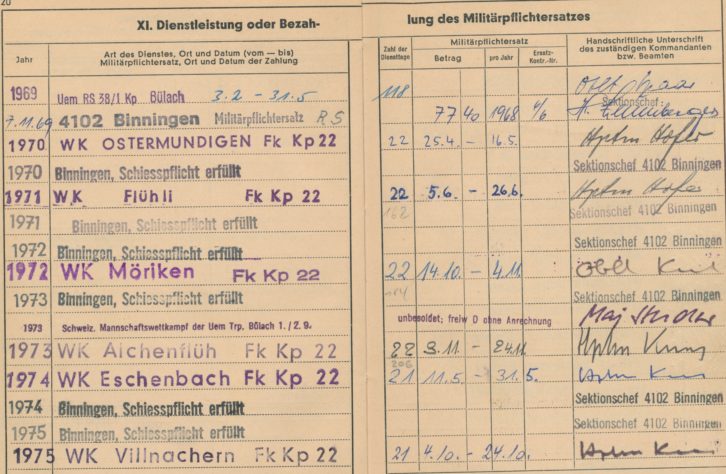 20
XI. Dienstleistung oder Bezah-
lung des Militärpflichtersatzes
Jahr
Art des Dienstes, Ort und Datum (vom — bis)
Militärpflichtersatz, Ort und Datum der Zahlung
Zahl der Diensttage
Militärpflichtersatz
Betrag
pro Jahr
Ersatz-Kontr.-Nr.
Handschriftliche Unterschrift des zuständigen Kommandanten bzw. Beamten
1969 Uem RS 38/I. Kp Bülach 3.2 - 31.5 118 Oblt
Sektionschef:
7.11.69 4102 Binningen Militärpflichtersatz RS 77 40 1968
1970 WK OSTERMUNDIGEN Fk Kp 22 22 25.4. - 16.5. Hptm Hofer
1970 Binningen, Schiesspflicht erfüllt Sektionschef 4102 Binningen
1971 WK Flühli Fk Kp 22 22 5.6. - 26.6. Hptm Hofer
162
1971 Binningen, Schiesspflicht erfüllt Sektionschef 4102 Binningen
1972 Binningen, Schiesspflicht erfüllt Sektionschef 4102 Binningen
1972 WK Möriken Fk Kp 22 22 14.10. - 4.11. Oblt
184
1973 Binningen, Schiesspflicht erfüllt Sektionschef 4102 Binningen
1973 Schweiz. Mannschaftswettkampf der Uem Trp. Bülach 1. / 2. 9. unbesoldet; freiw D ohne Anrechnung Maj
1973 WK Aichenflüh Fk Kp 22 22 3.11. - 24.11. Hptm
206
1974 WK Eschenbach Fk Kp 22 21 11.5. - 31.5. Hptm
1974 Binningen, Schiesspflicht erfüllt Sektionschef 4102 Binningen
1975 Binningen, Schiesspflicht erfüllt Sektionschef 4102 Binningen
1975 WK Villnachern Fk Kp 22 21 4.10. - 24.10. Hptm